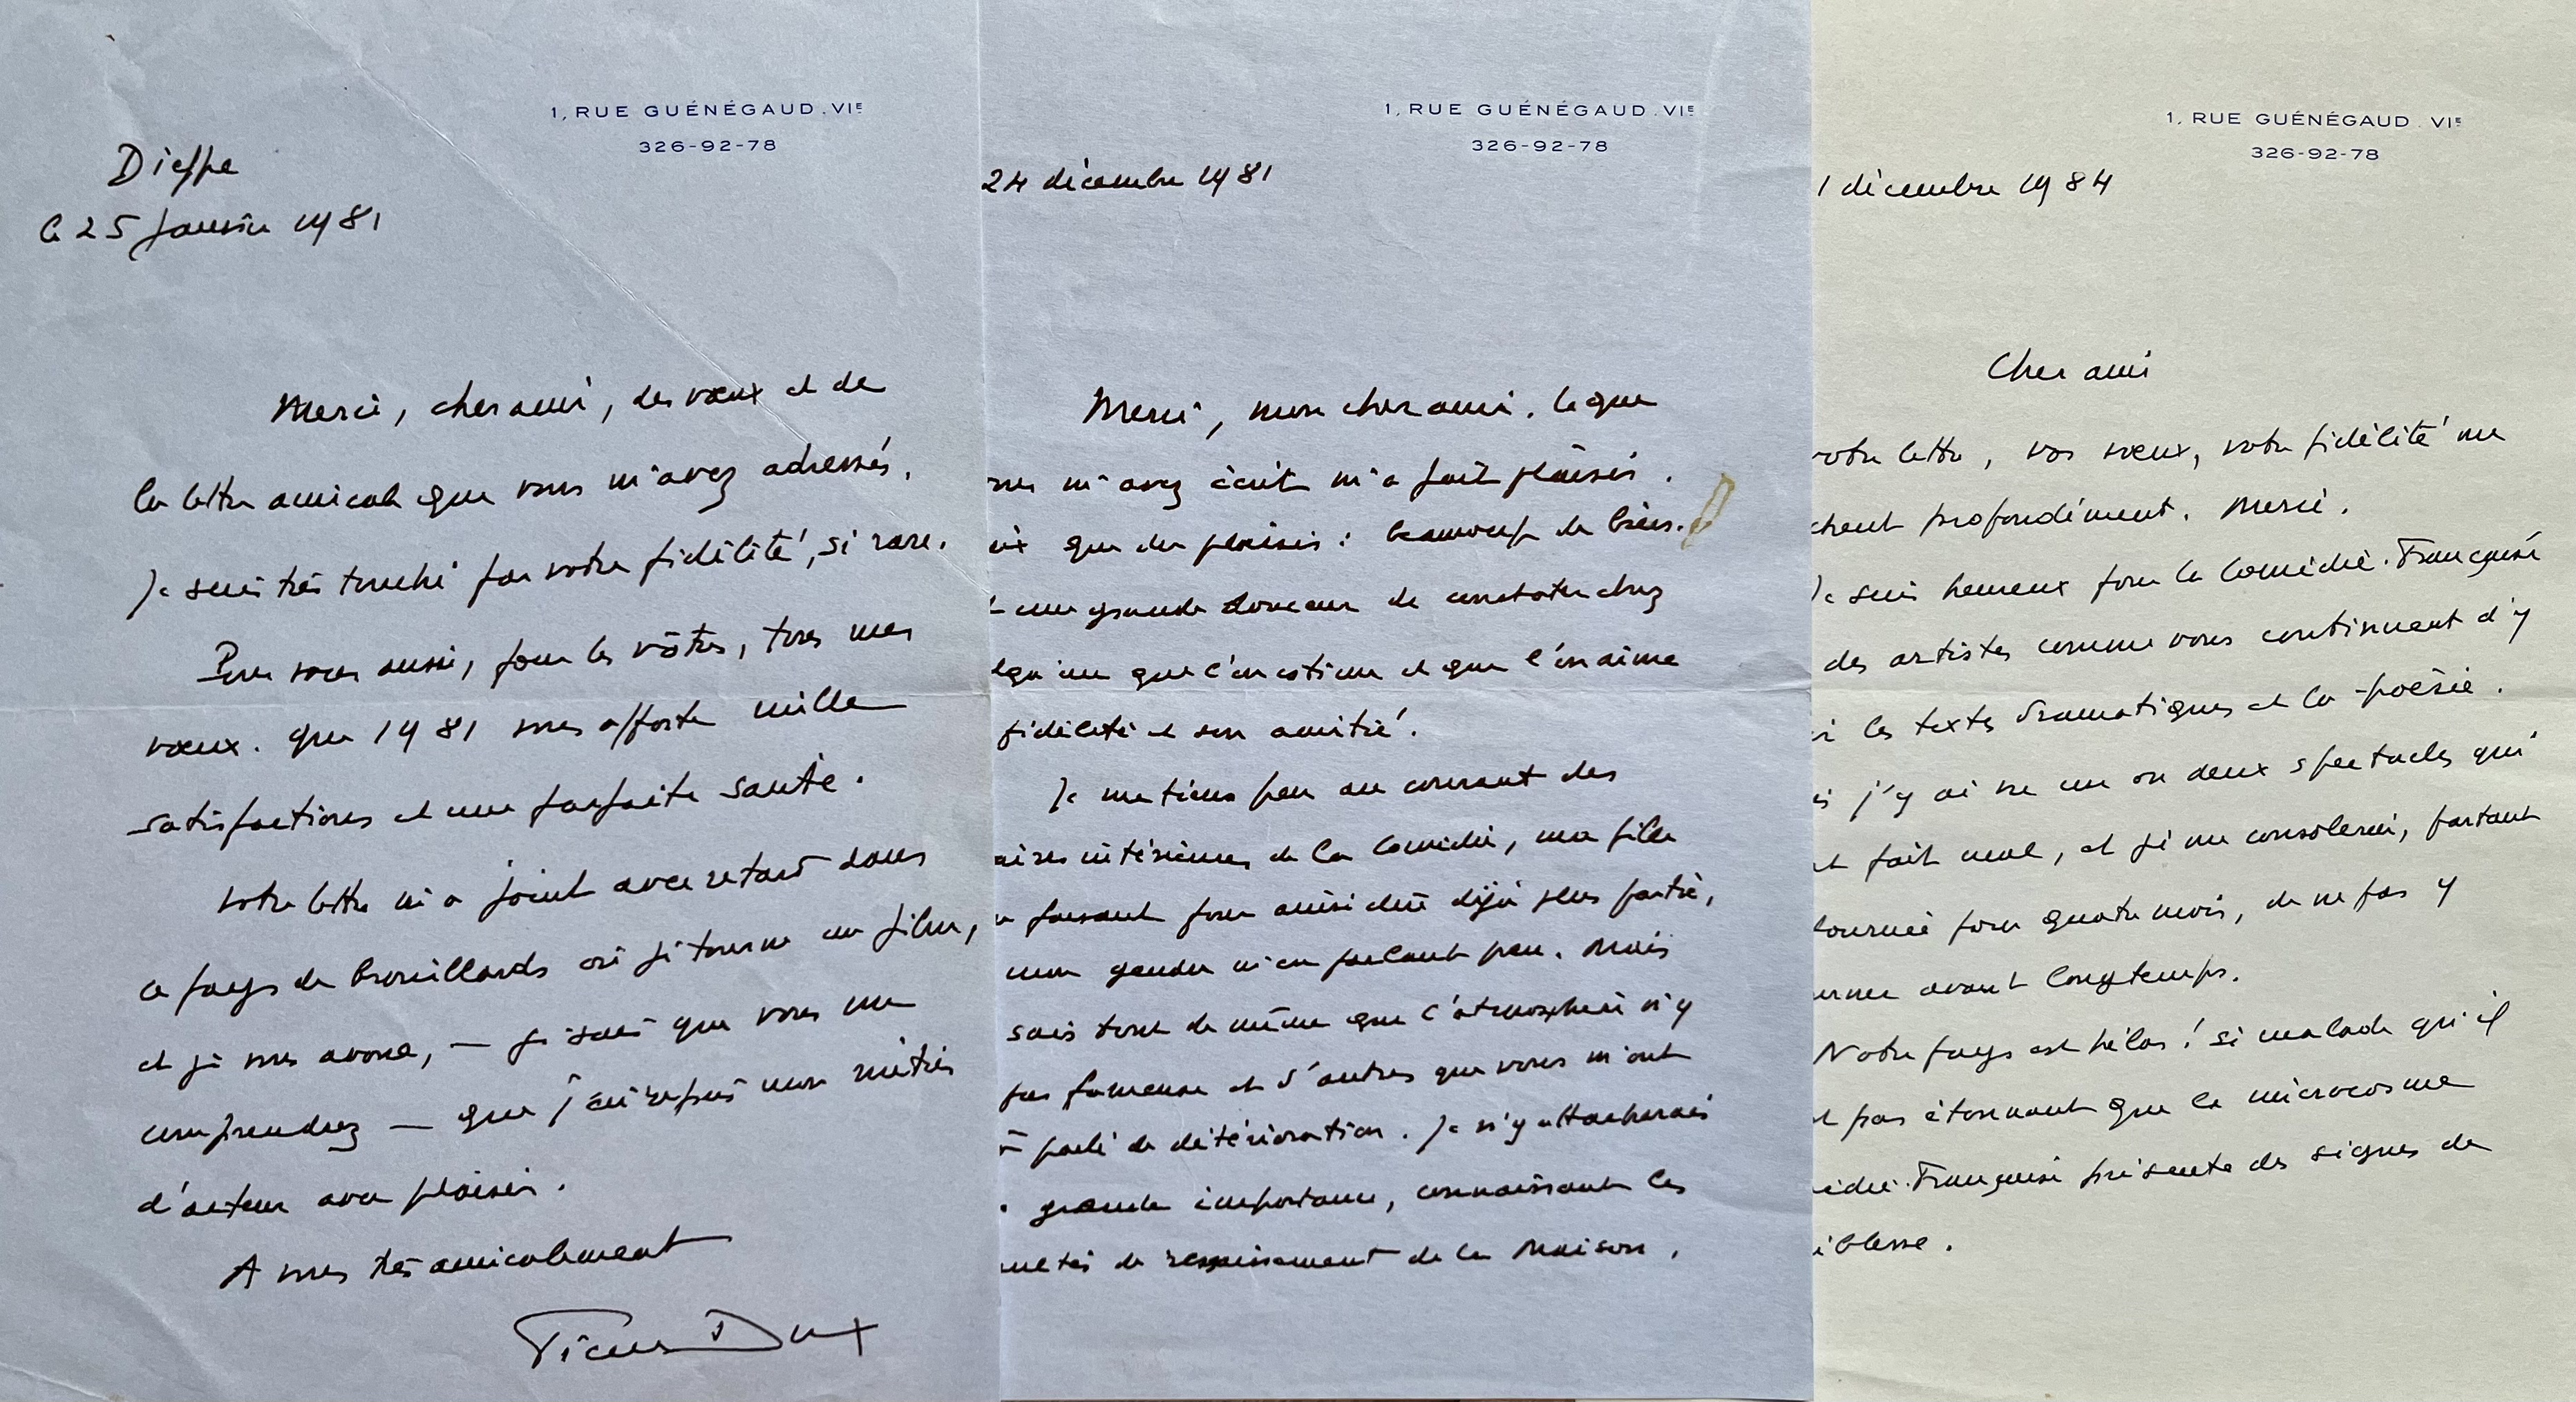 1, RUE GUÉNÉGAUD. VIE
326-92-78
Dieppe
le 25 Janvier 1981
Merci, cher ami, des vœux et de
la lettre amicale que vous m'avez adressés.
Je suis très touché par votre fidélité, si rare.
Pour vous aussi, pour les vôtres, tous mes
vœux. Que 1981 vous apporte mille
satisfactions et une parfaite santé.
Votre lettre m'a joint avec retard dans
ce pays de brouillards où je tourne un film,
et je vous avoue, — je sais que vous me
comprendrez — que j'ai repris mon métier
d'acteur avec plaisir.
A vous très amicalement
Pierre Dux
1, RUE GUÉNÉGAUD. VIE
326-92-78
24 décembre 1981
Merci, mon cher ami. Ce que
vous m'avez écrit m'a fait plaisir.
que du plaisir : beaucoup de bien.
une grande douceur de constater chez
qu'un que l'on estime et que l'on aime
fidélité et son amitié.
Je me tiens peu au courant des
aires intérieures de la Comédie, ma fille
faisant pour ainsi dire déjà plus partie,
mon gendre m'en parlant peu. Mais
sais tout de même que l'atmosphère n'y
pas fameuse et d'autres que vous m'ont
parlé de détérioration. Je n'y attacherais
grande importance, connaissant les
ultés de ressaisissement de la Maison.
1, RUE GUÉNÉGAUD. VIE
326-92-78
1 décembre 1984
Cher ami
votre lettre, vos vœux, votre fidélité me
chent profondément. Merci.
Je suis heureux pour la Comédie-Française
des artistes comme vous continuent d'y
les textes dramatiques et la poésie.
j'y ai vu un ou deux spectacles qui
t fait mal, et je me consolerai, partant
tournée pour quatre mois, de ne pas y
urner avant longtemps.
Notre pays est hélas ! si malade qu'il
t pas étonnant que le microcosme
édie-Française présente des signes de
iblesse.